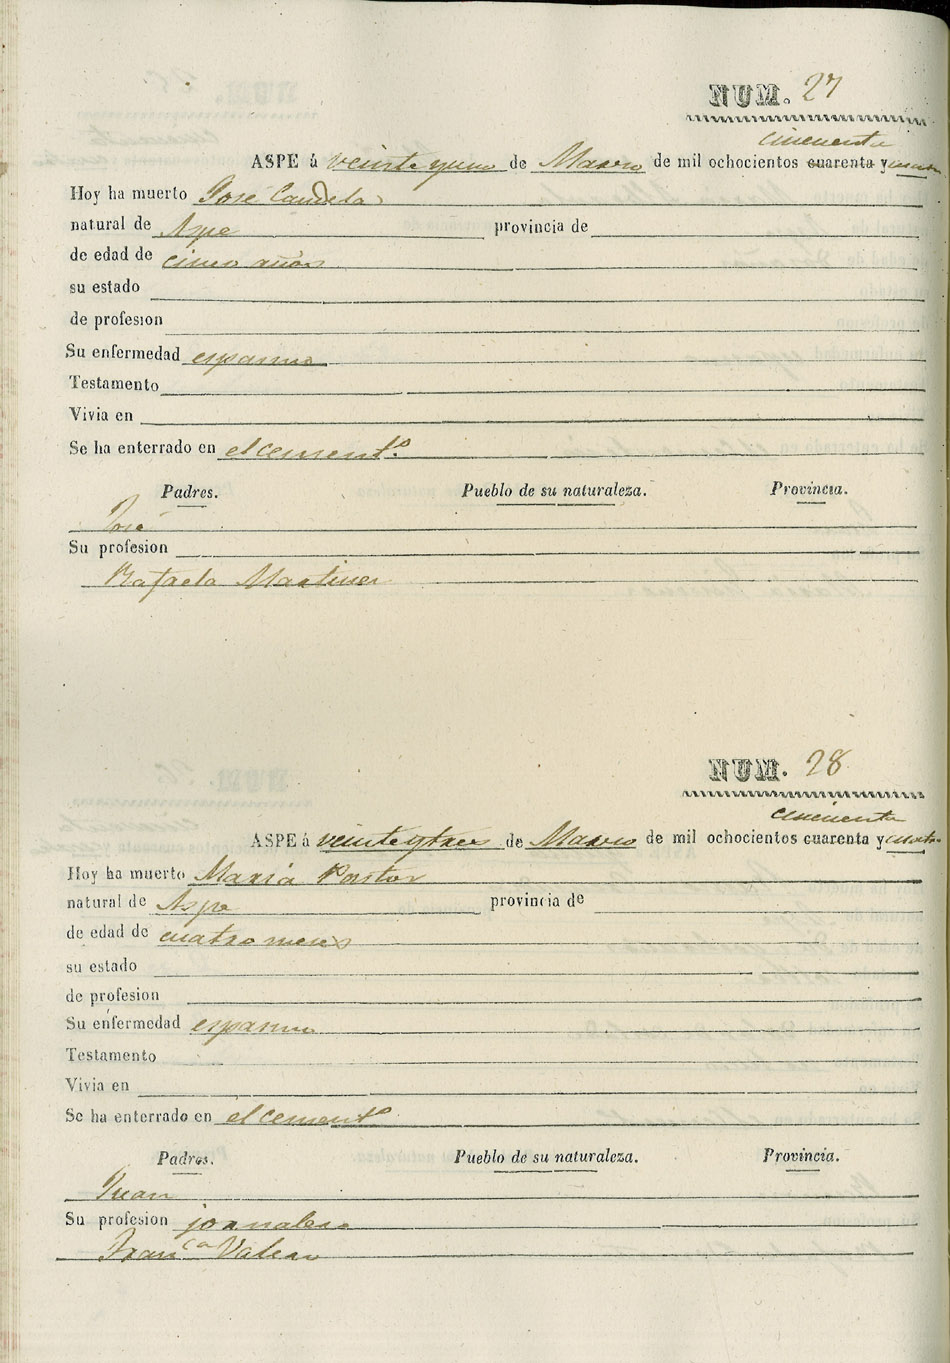 NUM. 27
cincuenta
ASPE á veinte y uno de Marzo de mil ochocientos cuarenta y cuatro
Hoy ha muerto José Candela
natural de Aspe provincia de
de edad de cinco años
su estado
de profesion
Su enfermedad espasmo
Testamento
Vivia en
Se ha enterrado en el cement.º
Padres. Pueblo de su naturaleza. Provincia.
José
Su profesion
Rafaela Martinez
NUM. 28
cincuenta
ASPE á veinte y tres de Marzo de mil ochocientos cuarenta y cuatro
Hoy ha muerto Maria Pastor
natural de Aspe provincia de
de edad de cuatro meses
su estado
de profesion
Su enfermedad espasmo
Testamento
Vivia en
Se ha enterrado en el cementº
Padres. Pueblo de su naturaleza. Provincia.
Juan
Su profesion jornalero
Franᶜᵃ Valero